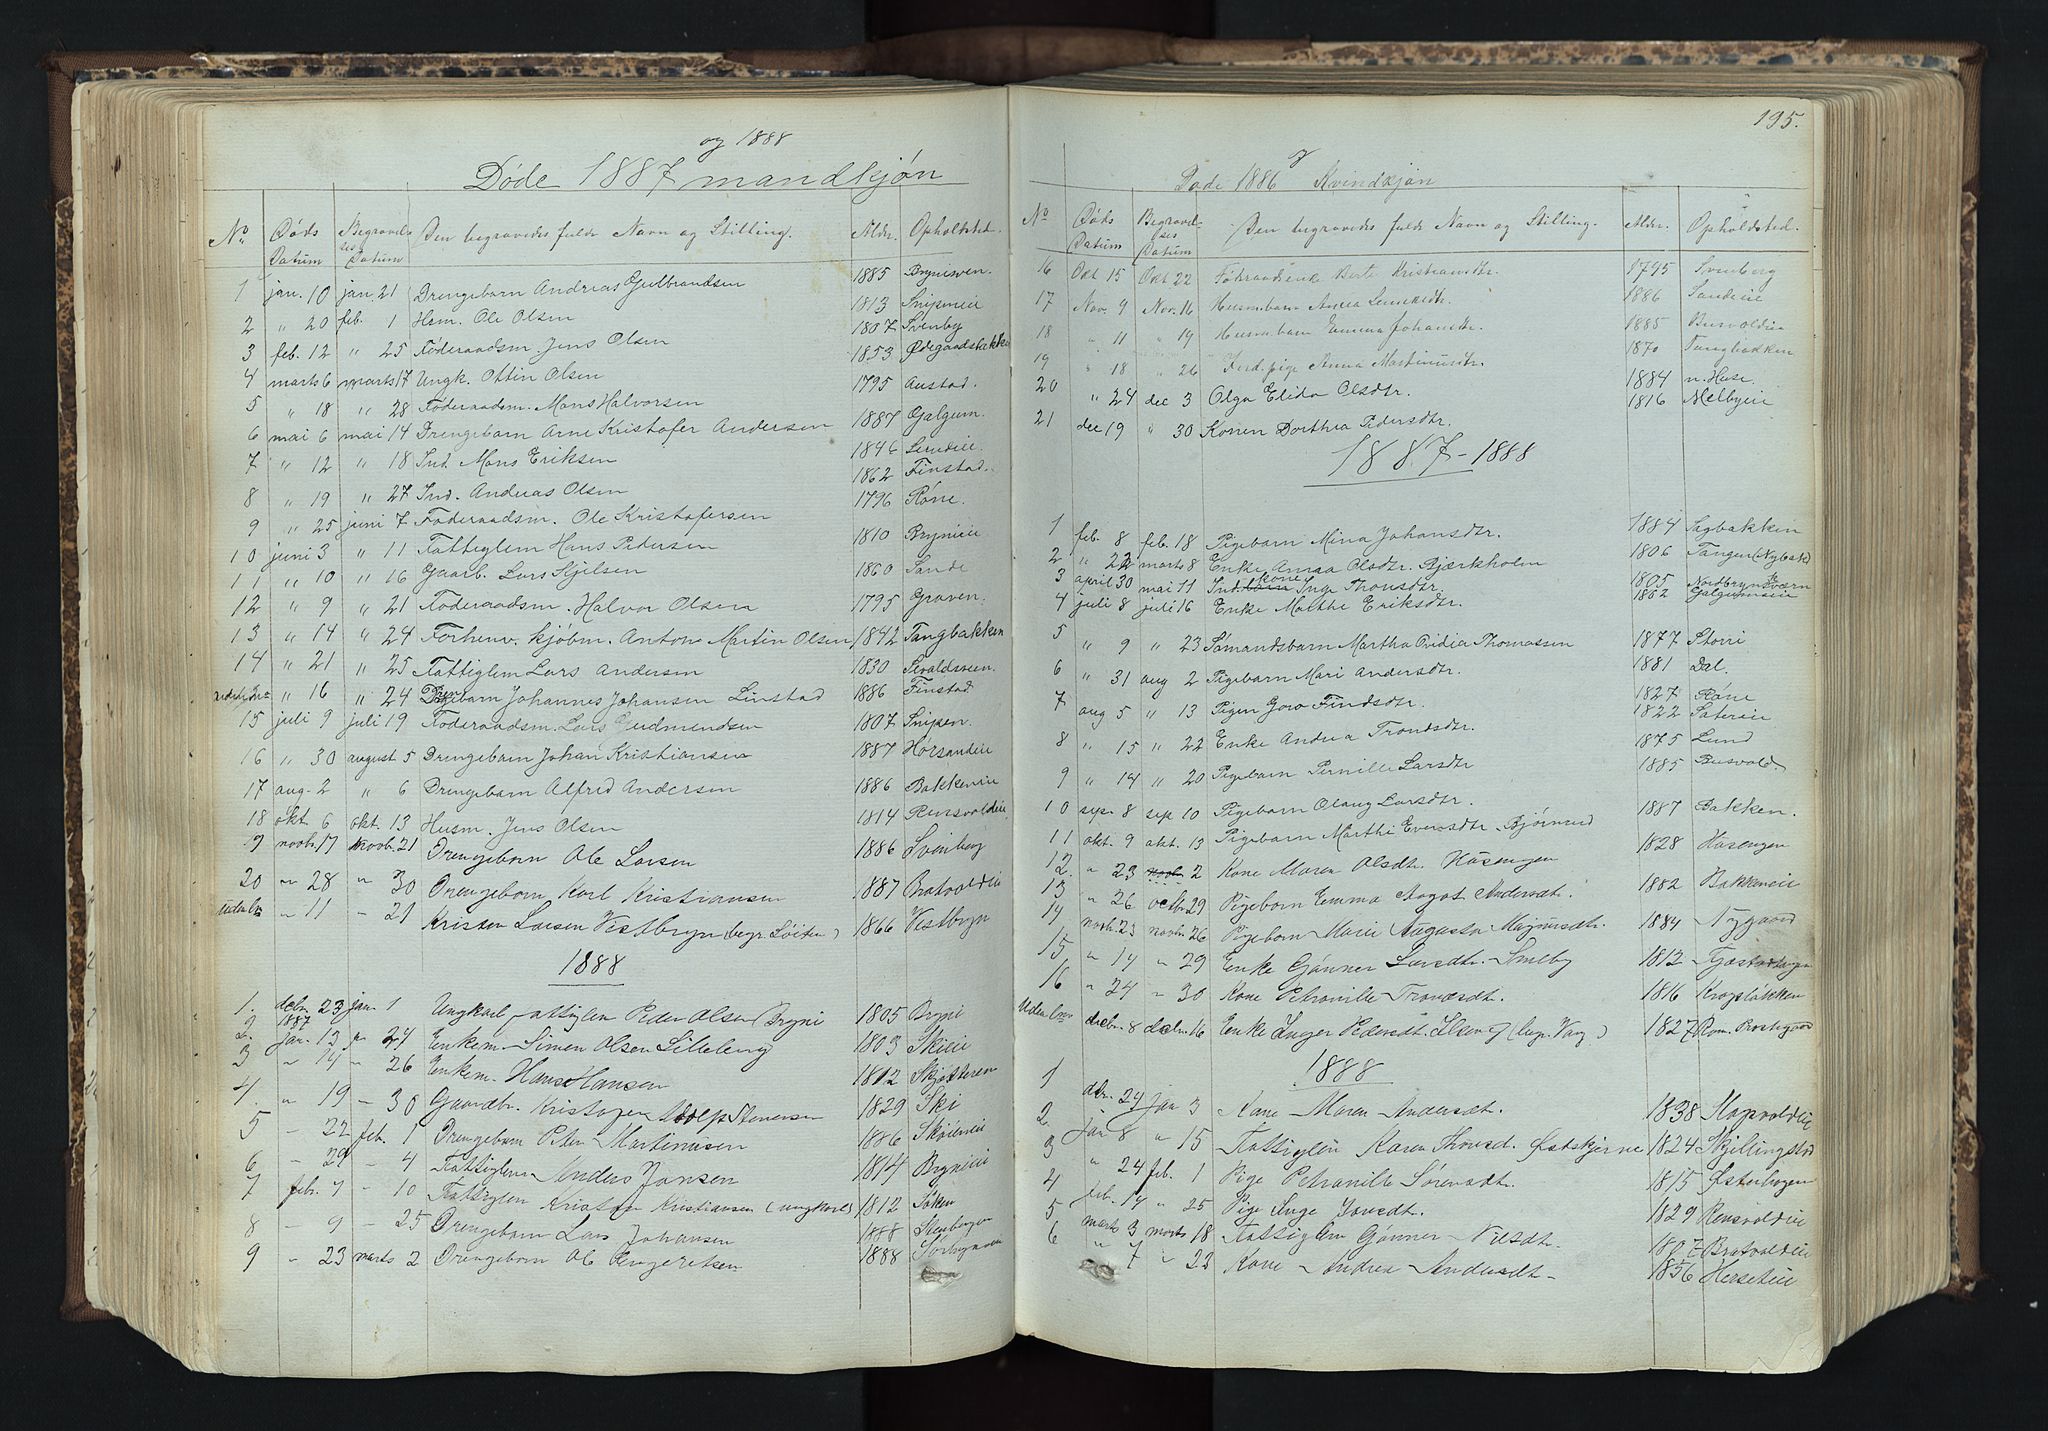 og 1888
Døde 1887 mandkjøn
No Døds Datum Begravelses Datum Den begravedes fulde Navn og Stilling. Alder. Opholdsted.
1 jan. 10 jan. 21 Drengebarn Andreas Gulbrandsen 1885 Brynisven.
2 " 20 feb. 1 Hsm. Ole Olsen 1813 Snipsneie
3 feb. 12 " 25 Føderaadsm Jens Olsen 1807 Svenby
4 marts 6 marts 17 Ungk. Ottin Olsen 1853 Ødegaardsbakke
5 " 18 " 28 Føderaadsm. Mons Halvorsen 1795 Austad.
6 mai 6 mai 14 Drengebarn Arne Kristofer Andersen 1887 Galgum.
7 " 12 " 18 Ind. Mons Eriksen 1846
8 " 19 " 27 Ind. Andreas Olsen 1862 Finstad.
9 " 25 juni 7 Føderaadsm. Ole Kristofersen 1796 Røne.
10 juni 3 " 11 Fattiglem Hans Pedersen 1810 Brynieie
11 " 10 " 16 Gaarb. Lars Kjelsen 1860 Sande
12 " 9 " 21 Føderaadsm. Halvor Olsen 1795 Graven.
13 " 14 " 24 Forhenv. kjøbm. Anton Martin Olsen 1842 Tangbakken
14 " 21 " 25 Fattiglem Lars Andersen 1830
" 16 " 24 Drengebarn Johannes Johansen Linstad 1886 Finstad
15 juli 9 juli 19 Føderaadsm. Lars Gudmundsen 1807 Snipen.
16 " 30 august 5 Drengebarn Johan Kristiansen 1887 Horsandeie
17 aug. 2 " 6 Drengebarn Alfred Andersen 1886 Bakkeneie
18 okt. 6 okt. 13 Husm. Jens Olsen 1814 Rensvoldeie
9 novbr. 17 novbr. 21 Drengebarn Ole Larsen 1886 Svenberg
20 " 28 " 30 Drengebarn Karl Kristiansen 1887 Bratvoldeie
Udenbs " 11 - 21 Kristen Larsen Vestbryn (begr. Løiten) 1866 Vestbryn
1888
1. decbr. 23 1887 jan. 1 Ungkarl fattiglem Peder Olsen (Bryni 1805 Bryni
2. jan. 13 jan 24 Enkem. Simen Olsen Lilleeng 1803 Skieie
3 " 14 - 26 Enkem. Hans Hansen 1812 Skjætteren
4. " 19 - 30 Gaardbr. Kristofer Adolf Stenersen 1829 Ski
5 - 22 feb. 1 Drengebarn Peter Martinusen 1886 Skøieneie
6 - 29 - 4 Fattiglem Anders Jansen 1814 Brynieie
7 feb. 7 - 10 Fattiglem Kristen Kristiansen (ungkarl) 1812 Løken
8 - 9 - 25 Drengebarn Lars Johansen 1888 Stenbergen
9 - 23 marts 2 Drengebarn Ole Engeretsen 1888
195.
Døde 1886 Kvindkjøn
No Døds Datum Begravelses Datum Den begravedes fulde Navn og Stilling. Alder. Opholdsted.
16 Okt 15 Okt 22 Føhraadsenke Berte Kristiansdtr. 1795 Svenberg
17 Nov. 9 Nov. 16 Husm.barn Anna 1886 Sandeie
18 " 11 " 19 Husm.barn Emma Johansdtr. 1885
19 " 18 " 26 Ind. pige Anna Martinusdtr. 1870 Tangbakken
20 " 24 dec 3 Olga Elida Olsdtr. 1884 n. Huse.
21 dec 19 " 30 Konen Dorthea Pedersdtr. 1816 Melbyeie
1887-1888
1 feb. 8 feb. 18 Pigebarn Mina Johansdtr. 1884 Sagbakken
2 " 22 marts 8 Enke Anna Olsdtr. Bjærkholm 1806 Tangen (Nybak)
3 april 30 mai 11 Ind. kone Inge Thorsdtr. 1805
4 juli 8 juli 16 Enke Marthe Eriksdtr. 1862 Galgumseie
5 " 9 " 23 Sømandsbarn Martha Ovidia Thomassen 1877 Storri
6 " 31 aug 2 Pigebarn Mari Andersdtr. 1881 Dal
7 aug 5 " 13 Pigen Goro Findsdtr. 1827 Røne
8 " 15 " 22 Enke Andrea Trondsdtr. 1822 Sætereie
9 " 14 " 20 Pigebarn Pernille Larsdtr 1875 Lund
10 sep. 8 sep 10 Pigebarn Olaug Larsdtr. 1885 Busvold
11 okt. 9 okt. 13 Pigebarn Marthe Evensdtr. Bjørnerud 1887 Bakken.
12. " 23 novbr. 2 Kone Maren Olsdtr. Hasengen 1828 Hasengen
13 " 26 octbr. 29 Pigebarn Emma Aagot Andersdtr. 1882 Bakkeneie
14 novb. 23 novbr. 26 Pigebarn Marie Augusta Magnusdtr. 1884 Nygaard
15 " 14 " 29 Enke Gønner Larsdtr. Smeby 1812
16 " 24 - 30 Kone Petronille Tronæsdtr. 1816 Krogsløkken
Udenbs decbr. 8 decbr. 16 Enke Inger Pedersdtr. Ilseng (begr. Vang) 1827 Rom. Prestegaard
1888
1 dcbr. 24 jan 3 Kone Maren Andersdtr. 1838
2. jan 8 " 15 Fattiglem Karen Thorsd. Østskjerne 1824 Skjellingstad
3 " 24 feb. 1 Pige Petronille Sørensdtr. 1815 Østerhagen
4 feb. 14 " 25 Pige Inge Jensdtr. 1829 Rensvoldeie
5 marts 3 marts 18 Fattiglem Gønner Nilsdtr. 1807 Bratvoldeie
6 " 7 " 23 Kone Andrea Andersdtr. 1856 Herseteie